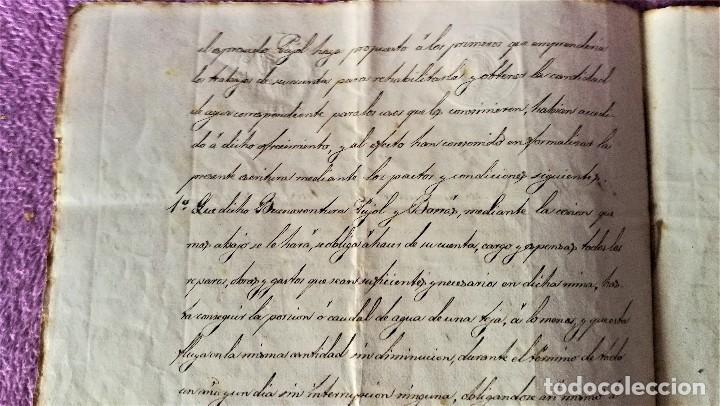 el espresado Pujol haya propuesto á los primeros que emprenderia
los trabajos de su cuenta para rehabilitarla y obtener la cantidad
de agua correspondiente para los usos que les convinieren, habian accedi-
do á dicho ofrecimiento, y al efecto han convenido en formalizar la
presente escritura mediante los pactos y condiciones siguientes.
1º Que dicho Buenaventura Pujol y Borrás, mediante la cesion que
mas abajo se le hará, se obliga á hacer de su cuenta, cargo y espensas todos los
reparos, obras y gastos que sean suficientes y necesarios en dicha mina, has-
ta conseguir la porsion ó caudal de agua de una teja, á lo menos, y que esta
fluya en la misma cantidad sin diminucion, durante el término de todo
un año y un dia sin interrupcion ninguna, obligandose asi mismo á
todocoleccion
todocoleccion.net